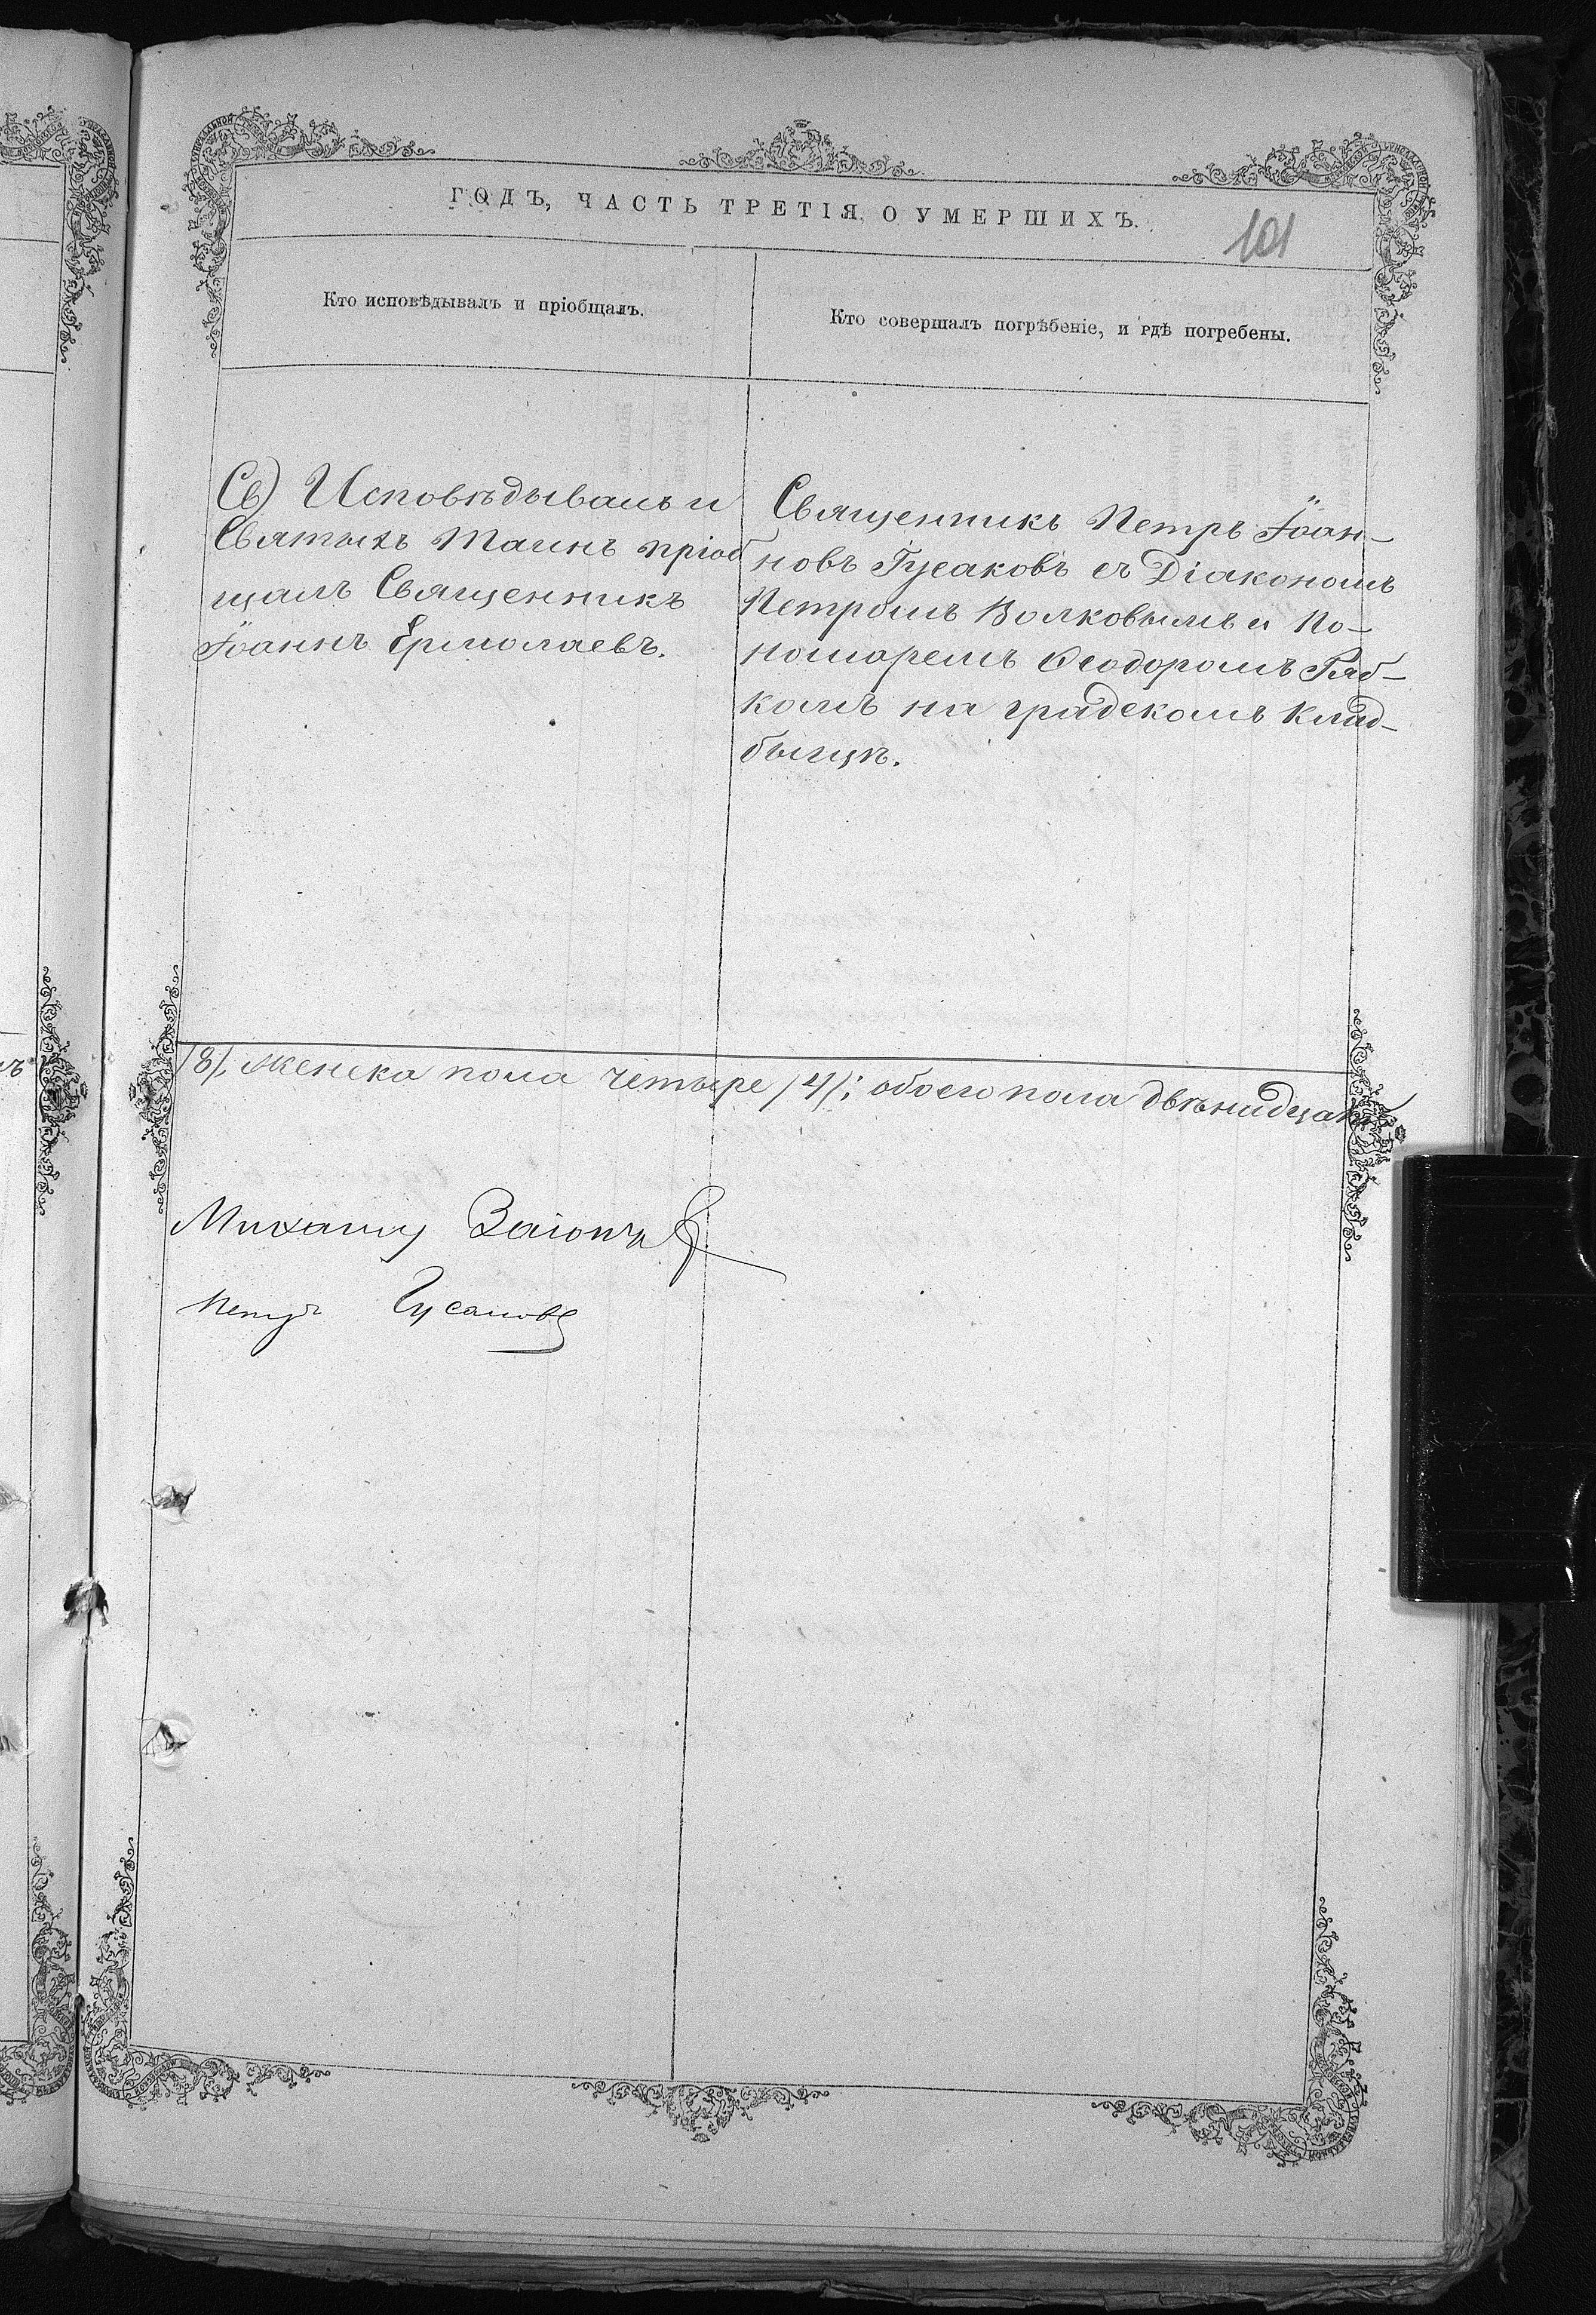 ГОДЪ, ЧАСТЬ ТРЕТІЯ, О УМЕРШИХЪ.
101
Кто исповѣдывалъ и пріобщалъ.
Кто совершалъ погрѣбеніе, и гдѣ погребены.
Исповѣдывалъ и
Святыхъ Таинъ пріоб
щалъ Священникъ
Іоаннъ Ермолаевъ.
Священникъ Петръ Іоан-
новъ Гусаковъ съ Діакономъ
Петромъ Волковымъ и По-
номаремъ Ѳеодоромъ Ряб-
комъ на градскомъ клад-
быщѣ.
/8/, женска пола четыре /4/; обоего пола двѣнадцать
Петръ Гусаковъ